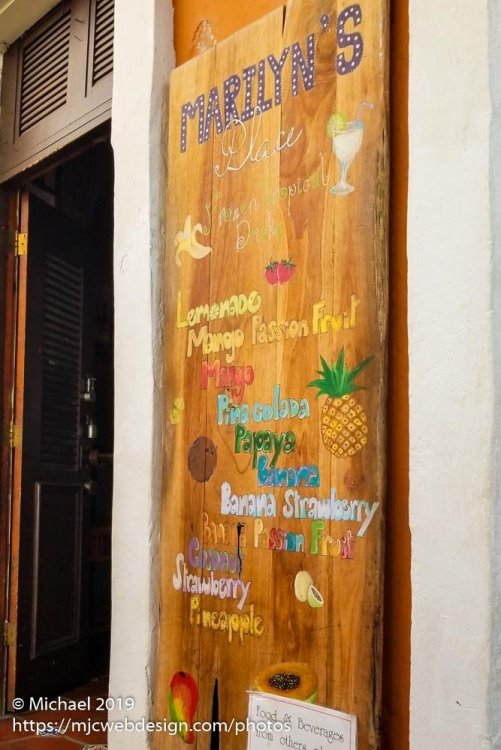 MARILYN'S
Place
Frozen tropical
Drinks
Lemonade
Mango Passion Fruit
Mango
Pina colada
Papaya
Banana
Banana Strawberry
Passion Fruit
Coconut
Strawberry
Pineapple
Food & Beverages
from others
© Michael 2019
https://mjcwebdesign.com/photos